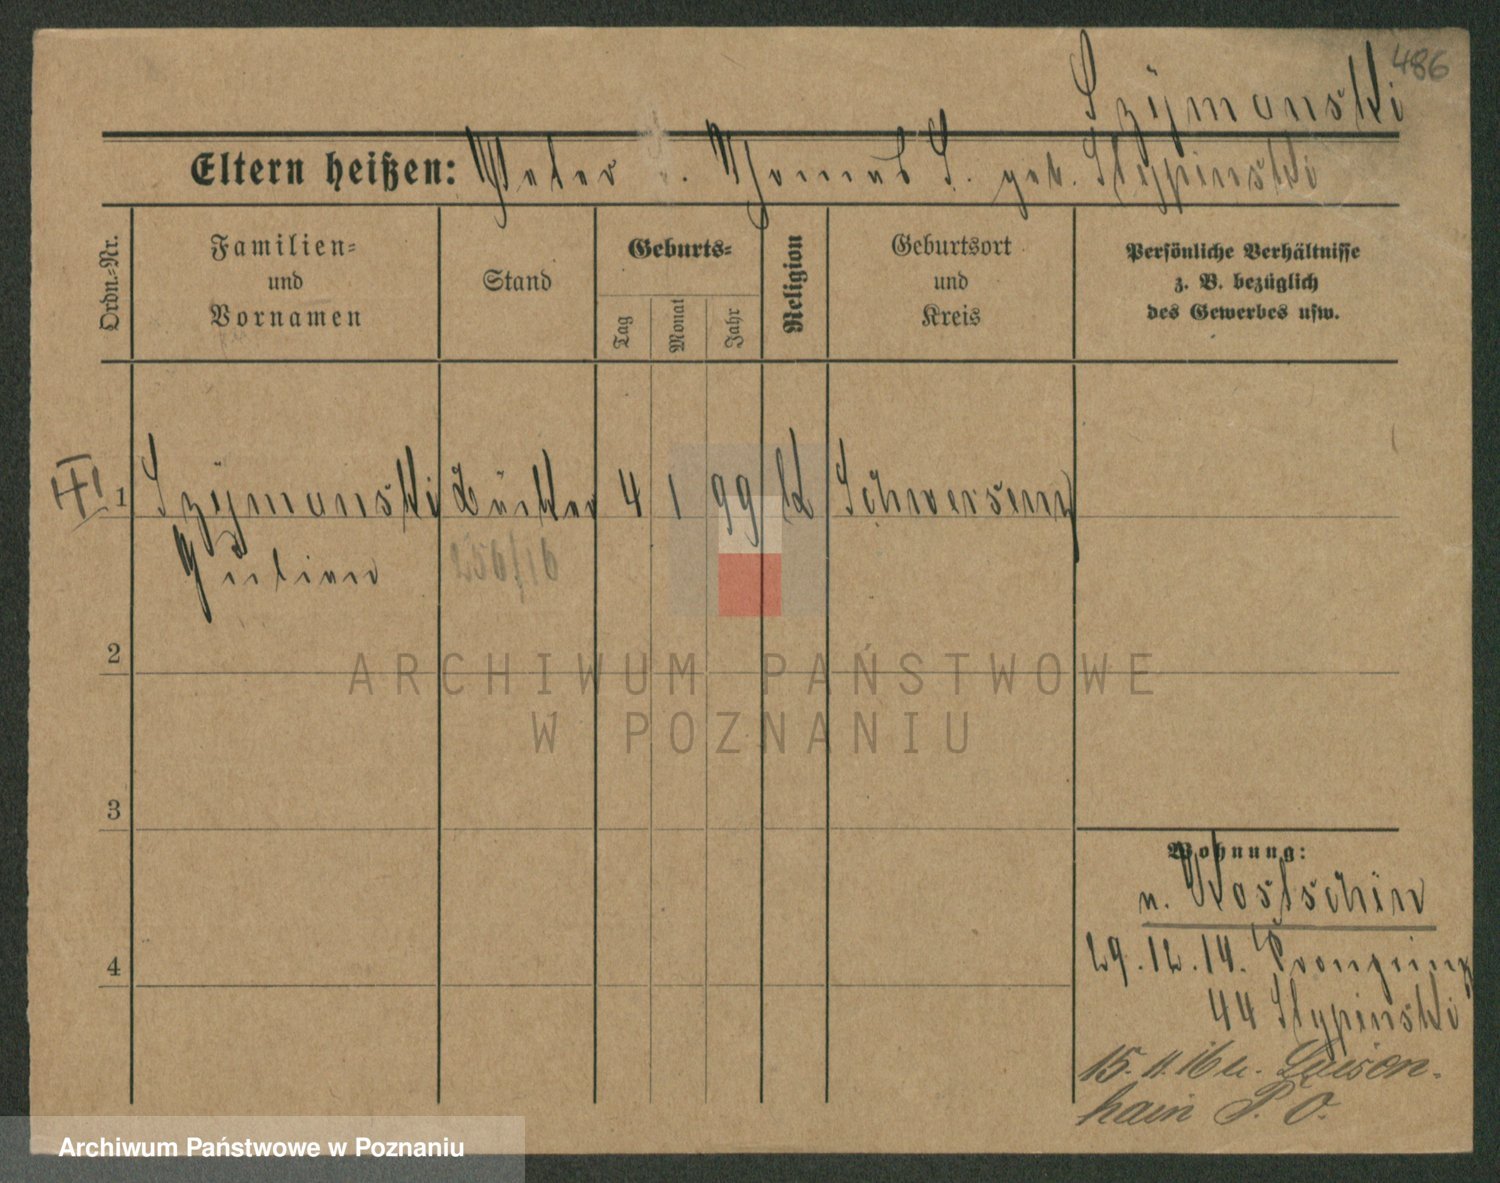 486
Szÿmanski
Eltern heißen: Peter u. Thomas S. geb. Stypinski
Ordn.-Nr.
Familien-
und
Vornamen
Stand
Geburts-
Tag
Monat
Jahr
Religion
Geburtsort
und
Kreis
Persönliche Verhältnisse
z. B. bezüglich
des Gewerbes usw.
1 Szÿmanski Bäcker 4 1 99 K Schwersenz
Julian 250/16
2
3
4
Wohnung:
n. Kostschin
29.12.14. Kronprinz
44 Stypinski
15.11.16 n.
hain P. O.
ARCHIWUM PAŃSTWOWE
W POZNANIU
Archiwum Państwowe w Poznaniu